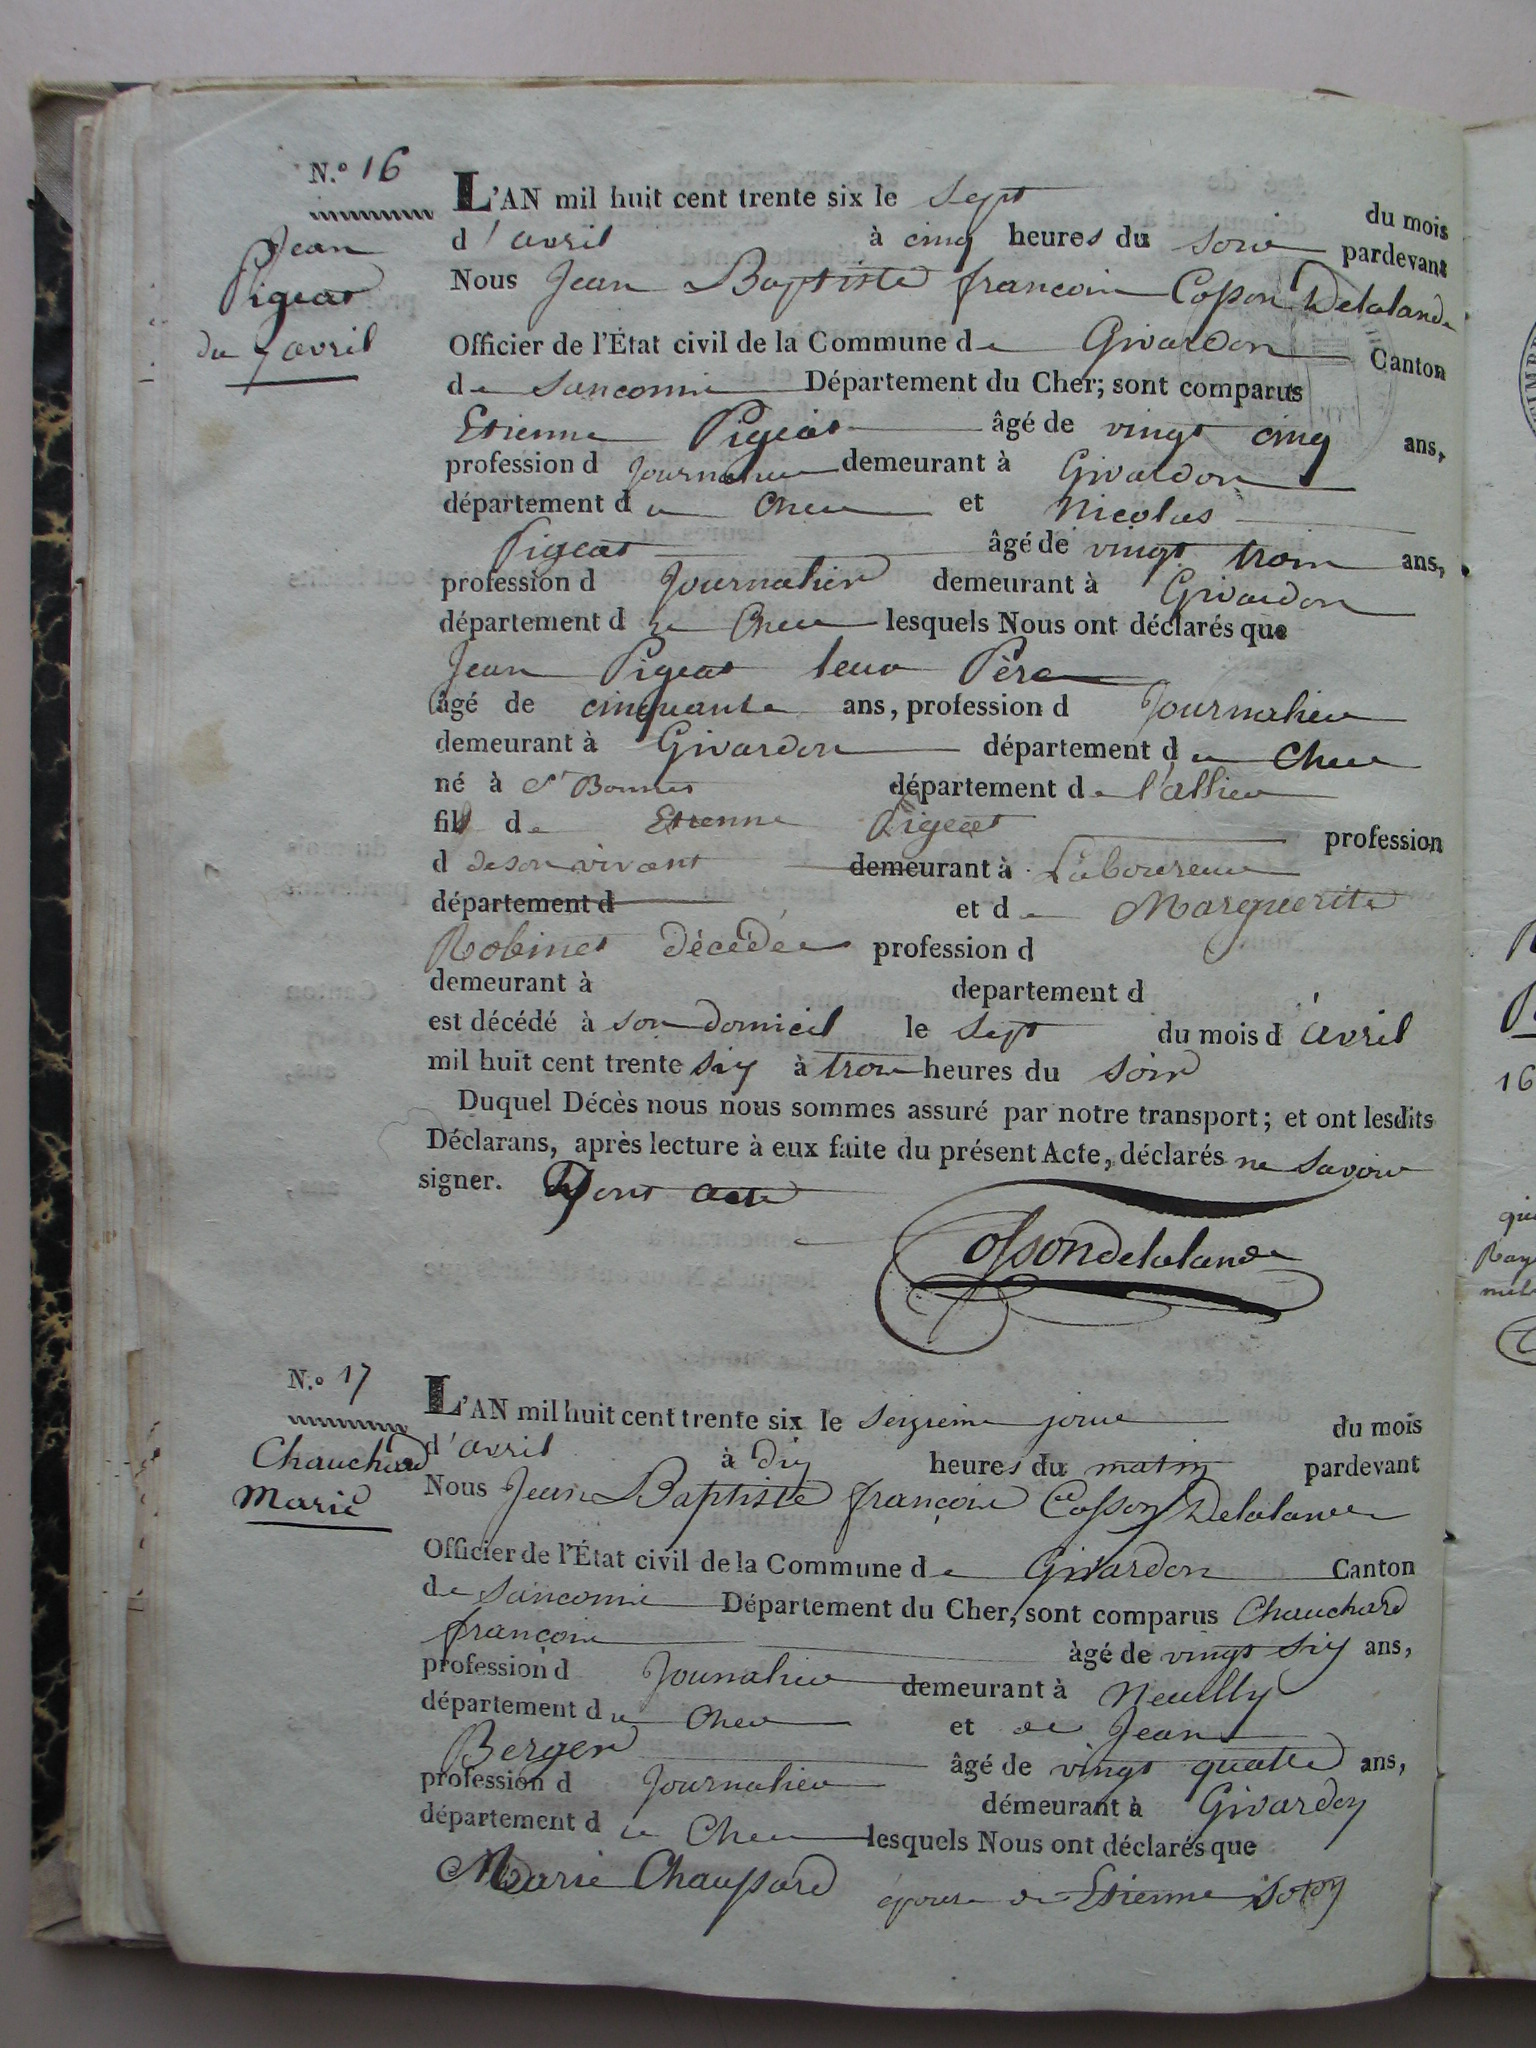 N.º 16
Jean
Pigeat
du 7 avril
L'AN mil huit cent trente six le sept du mois
d'avril à cinq heures du soir pardevant
Nous Jean Baptiste françois Cosson Delalande
Officier de l'État civil de la Commune de Givardon Canton
de Sancoins Département du Cher; sont comparus
Etienne Pigeat âgé de vingt cinq ans,
profession d Journalier demeurant à Givardon
département du Cher et Nicolas
Pigeat âgé de vingt trois ans,
profession d Journalier demeurant à Givardon
département du Cher lesquels Nous ont déclarés que
Jean Pigeat leur Père
âgé de cinquante ans, profession d Journalier
demeurant à Givardon département du Cher
né à St Bonnet département de l'allier
fils de Etienne Pigeat profession
d de son vivant demeurant à Laboureur
département d et de Marguerite
Robinet décédée profession d
demeurant à departement d
est décédé à son domicil le sept du mois d'avril
mil huit cent trente six à trois heures du soir
Duquel Décès nous nous sommes assuré par notre transport; et ont lesdits
Déclarans, après lecture à eux faite du présent Acte, déclarés ne savoir
signer. Dont acte
Cossondelalande
N.º 17
Chauchard
Marie
L'AN mil huit cent trente six le seizieme jour du mois
d'avril à dix heures du matin pardevant
Nous Jean Baptiste françois Cosson Delalande
Officier de l'État civil de la Commune de Givardon Canton
de Sancoins Département du Cher, sont comparus Chauchard
françois àgé de vingt six ans,
profession d Jounalier demeurant à Neuilly
département du Cher et de Jean
Berger âgé de vingt quatre ans,
profession d Journalier démeurant à Givardon
département du Cher lesquels Nous ont déclarés que
Marie Chaussard épouse de Etienne